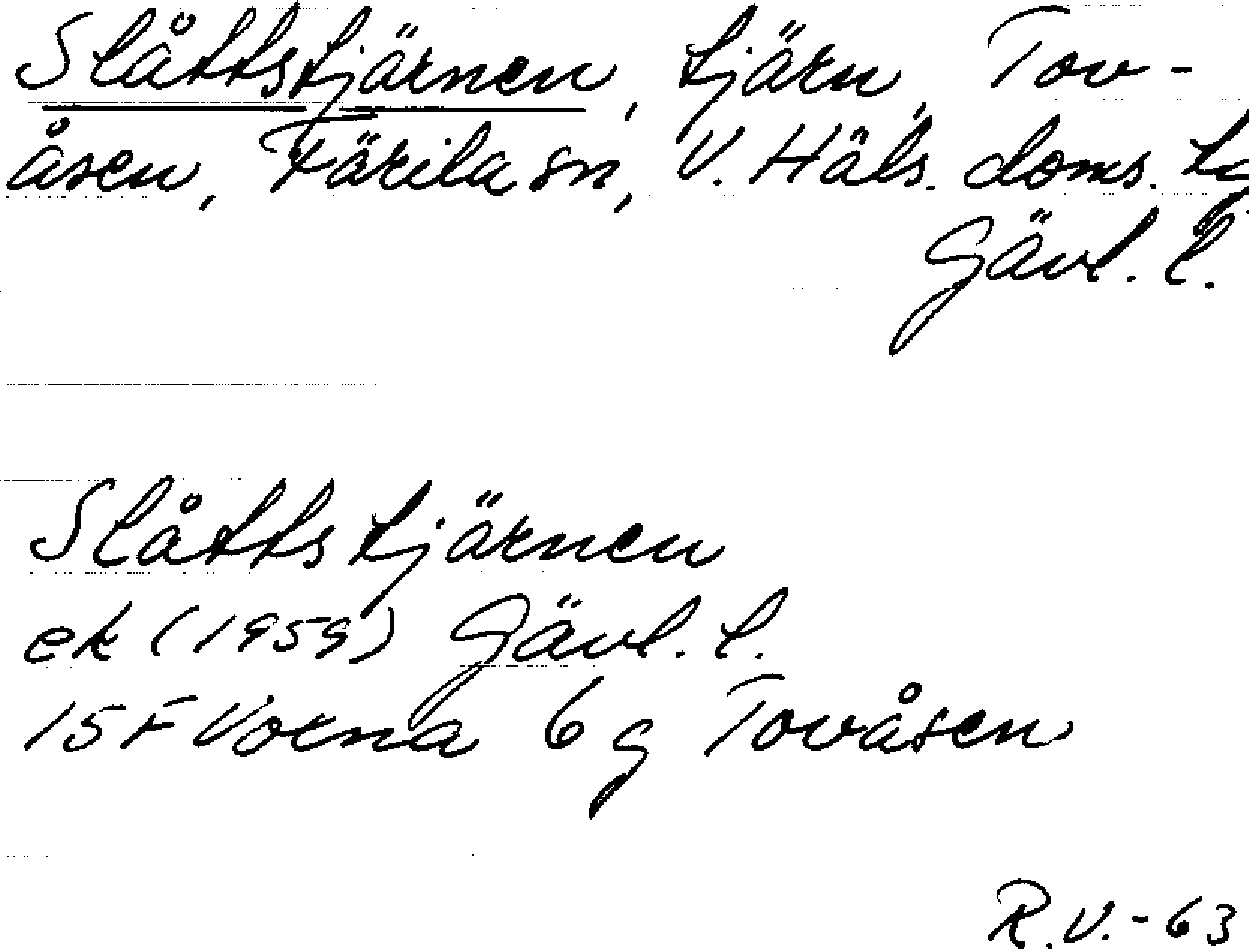 Slåttstjärnen, tjärn, Tov-
åsen, Färila sn, V. Häls. doms. tg
Gävl. l.
Slåttstjärnen
ek (1959) Gävl. l.
15 F Voxna 6 g Tovåsen
R.V.-63